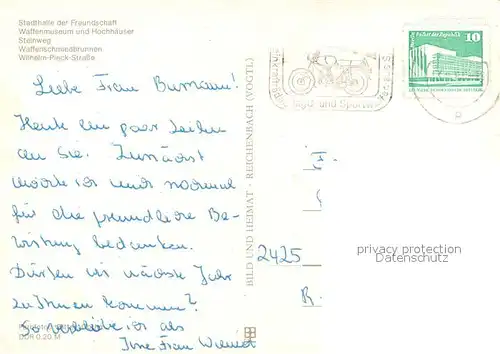 Stadthalle der Freundschaft
Waffenmuseum und Hochhäuser
Steinweg
Waffenschmiedbrunnen
Wilhelm-Pieck-Straße
Liebe Frau Bumann!
Heute ein paar Zeilen
an Sie. Zunächst
möchte ich mich nochmal
für die freundliche Be-
wirtung bedanken.
Dürfen wir nächste Jahr
zu Ihnen kommen?
So verbleibe ich als
Ihre Frau
DDR 0,20 M
BILD UND HEIMAT · REICHENBACH (VOGTL)
und Sportw
Palast der Republik
10
F.
2425
R.
privacy protection
Datenschutz